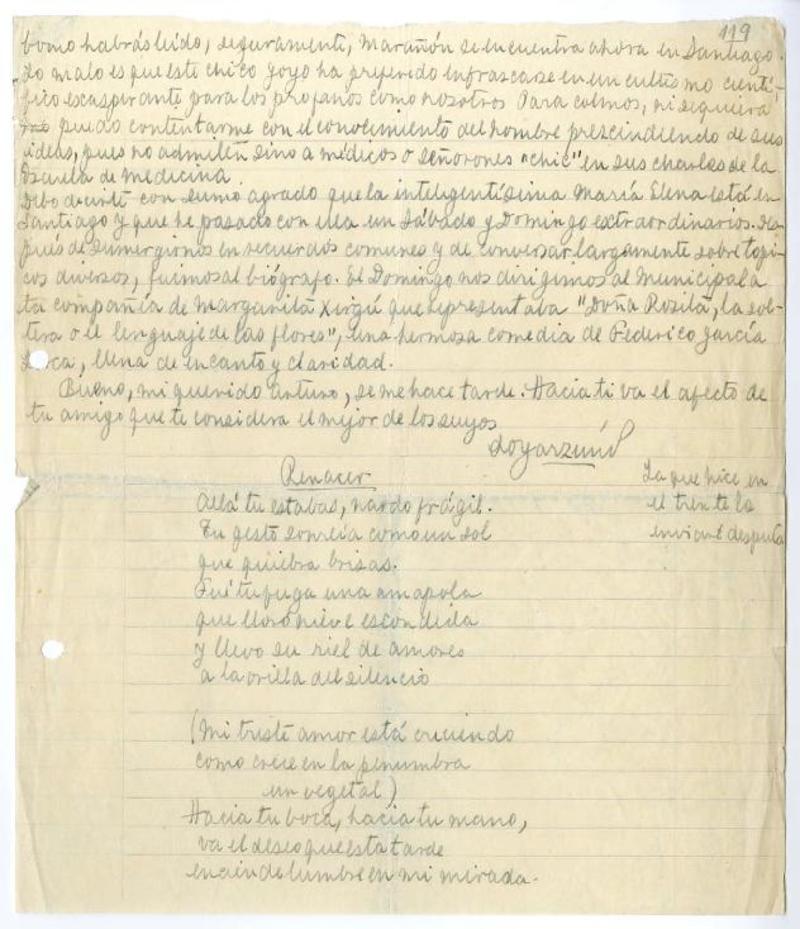 119
Como habrás leído, seguramente, Marañón se encuentra ahora en Santiago.
Lo malo es que este chico Goyo ha preferido enfrascarse en un cultismo cientí-
fico escasperante para los profanos como nosotros Para colmos, ni siquiera
puedo contentarme con el conocimiento del hombre prescindiendo de sus
ideas, pues no admiten sino a médicos o señorones "chic" en sus charlas de la
Escuela de medicina.
Debo decirte con sumo agrado que la inteligentísima María Elena está en
Santiago y que he pasado con ella un Sábado y Domingo extraordinarios. Des-
pués de sumergirnos en recuerdos comunes y de conversar largamente sobre tópi-
cos diversos, fuimos al biógrafo. El Domingo nos dirigimos al Municipal a
la compañía de Margarita Xirgú que representaba "Doña Rosita, la sol-
tera o el lenguaje de las flores", una hermosa comedia de Federico García
Lorca, llena de encanto y claridad.
Bueno, mi querido Arturo, se me hace tarde. Hacia ti va el afecto de
tu amigo que te considera el mejor de los suyos
LOyarzún
Renacer
La que hice en
el tren te la
enviaré después
Allá tu estabas, nardo frágil.
Tu gesto sonreía como un sol
que quiebra brisas.
Fué tu fuga una amapola
que lloró nieve escondida
y llevo su riel de amores
a la orilla del silencio
(Mi triste amor está creciendo
como crece en la penumbra
un vegetal)
Hacia tu boca, hacia tu mano,
va el deseo que esta tarde
enciende lumbre en mi mirada.